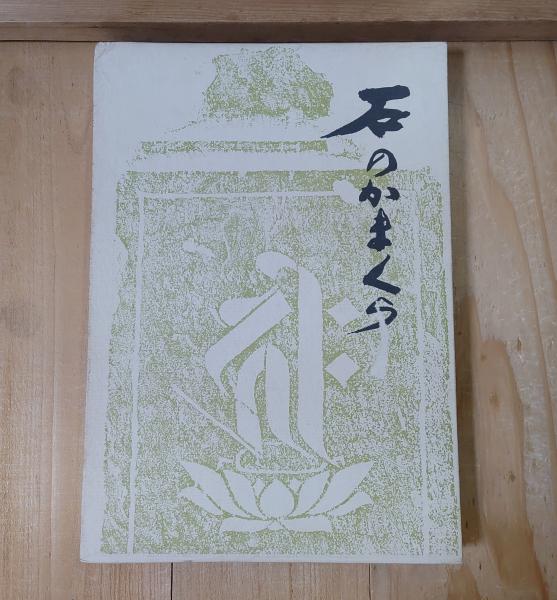 石のかまくら